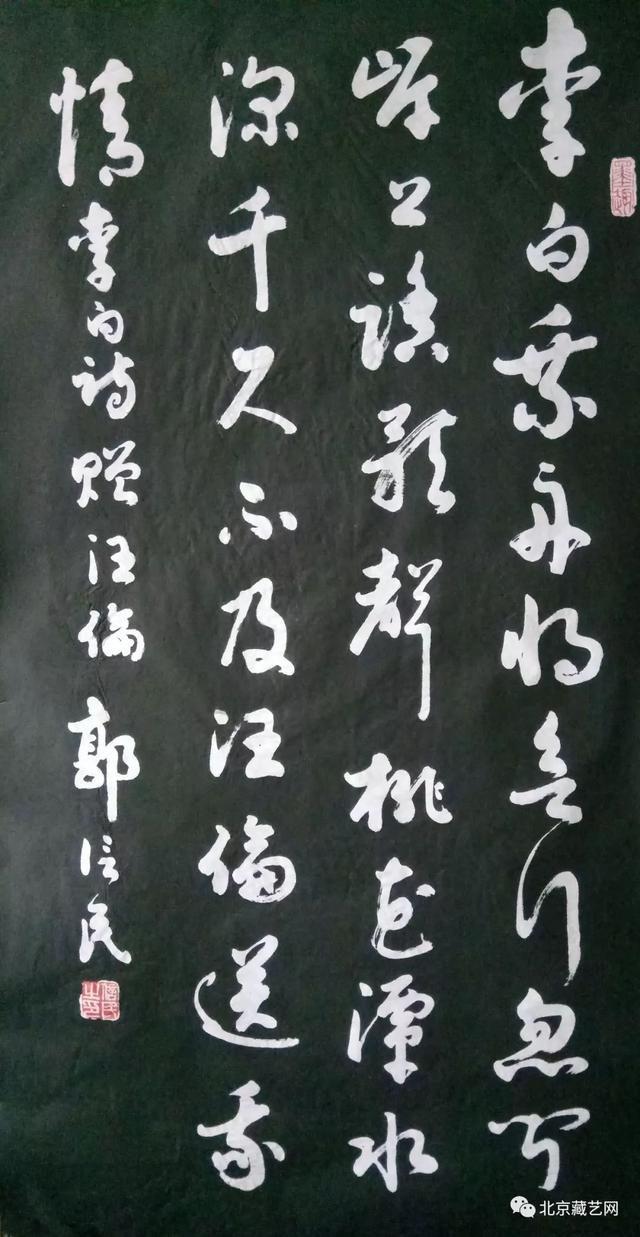 李白乘舟将欲行忽闻
岸上踏歌聲桃花潭水
深千尺不及汪倫送我
情 李白诗赠汪倫 郭信民
信民之印
北京藏艺网